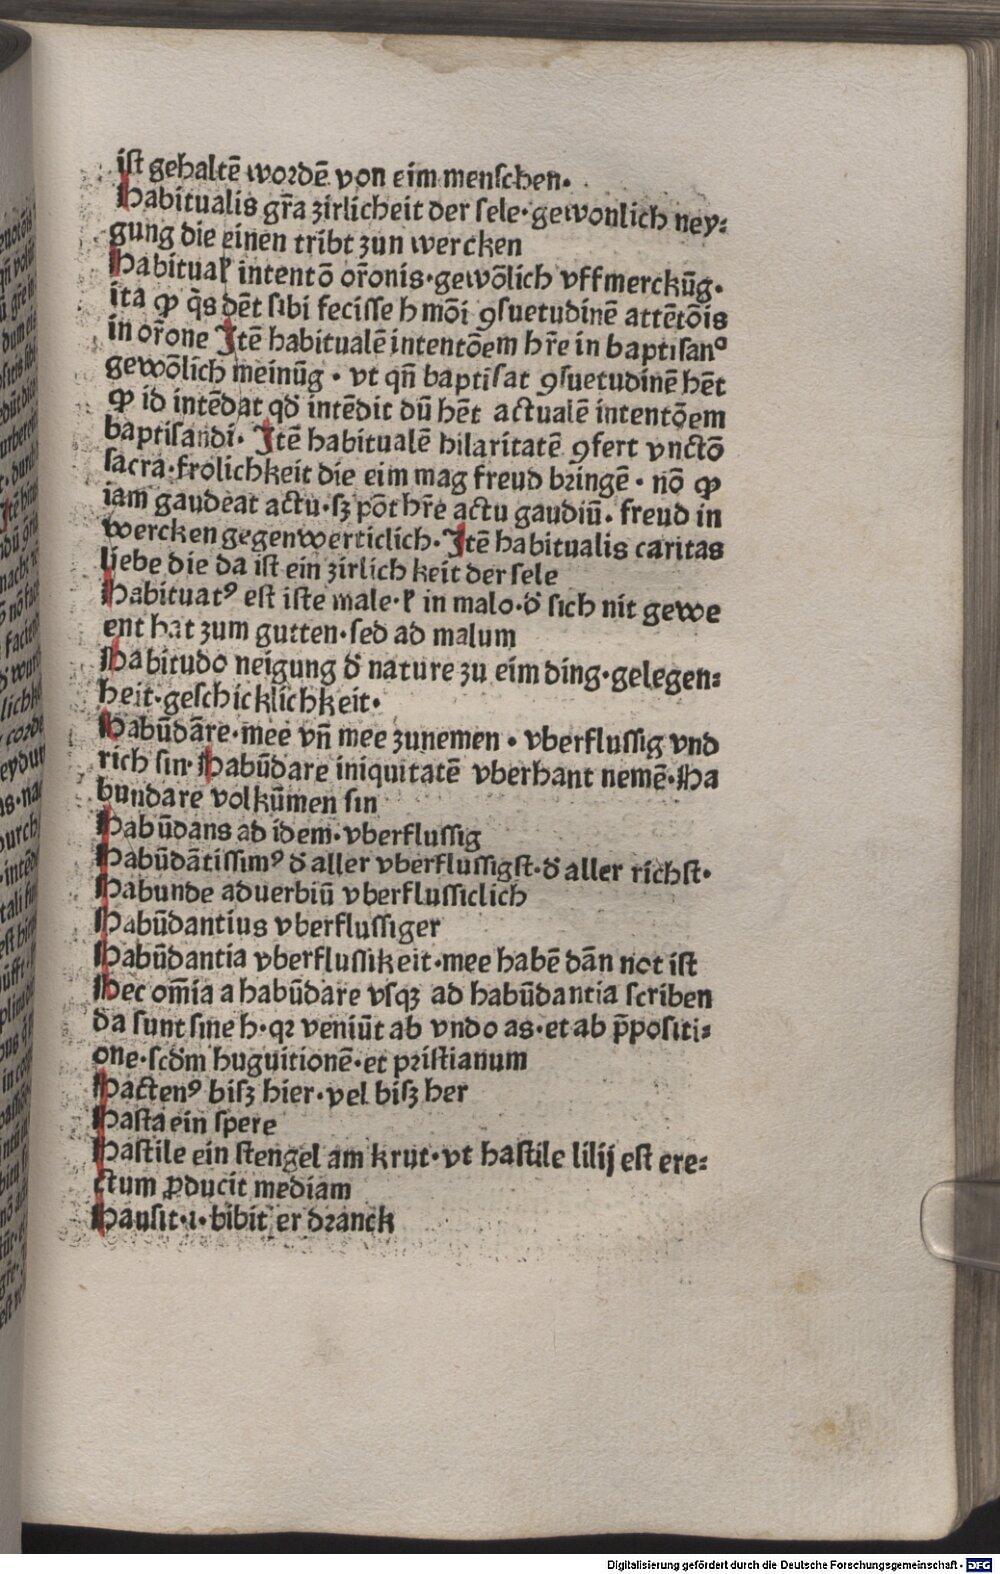 ist gehaltē wordē von eim menschen·
Habitualis gr̄a zirlicheit der sele·gewonlich ney⸗
gung die einen tribt zun wercken
Habitual' intentō or̄onis·gewōlich vffmerckūg·
ita ꝙ q̄s dēt sibi fecisse h mōi ꝯsuetudinē attētōis
in or̄one Itē habitualē intentōem hr̄e in baptisanº
gewōlich meinūg · vt qn̄ baptisat ꝯsuetudinē hēt
ꝙ id intēdat qd' intēdit dū hēt actualē intentōem
baptisandi· Itē habitualē hilaritatē ꝯfert vnctō
sacra·frolichkeit die eim mag freud bringē · nō ꝙ
iam gaudeat actu·sꝫ pōt hr̄e actu gaudiū· freud in
wercken gegenwerticlich· Itē habitualis caritas
liebe die da ist ein zirlich keit der sele
Habituatꝰ est iste male·l' in malo·d' sich nit gewe
ent hat zum gutten·sed ad malum
Habitudo neigung d' nature zu eim ding·gelegen⸗
heit·geschicklichkeit·
Habūdāre·mee vn̄ mee zunemen · vberflussig vnd
rich sin· Habūdare iniquitatē vberhant nemē·Ha
bundare volkūmen sin
Habūdans ad idem·vberflussig
Habūdātissimꝰ d' aller vberflussigst·d' aller richst·
Habunde aduerbiū vberflussiclich
Habūdantius vberflussiger
Habūdantia vberflussikeit·mee habē dān not ist
Hec om̄ia a habūdare vsqꝫ ad habūdantia scriben
da sunt sine h·qꝛ veniūt ab vndo as·et ab p̄positi⸗
one·scdm huguitionē·et pristianum
Hactenꝰ bisz hier·vel bisz her
Hasta ein spere
Hastile ein stengel am krut·vt hastile lilij est ere⸗
ctum ꝓducit mediam
Hausit·i·bibit er dranck
Digitalisierung gefördert durch die Deutsche Forschungsgemeinschaft - DFG